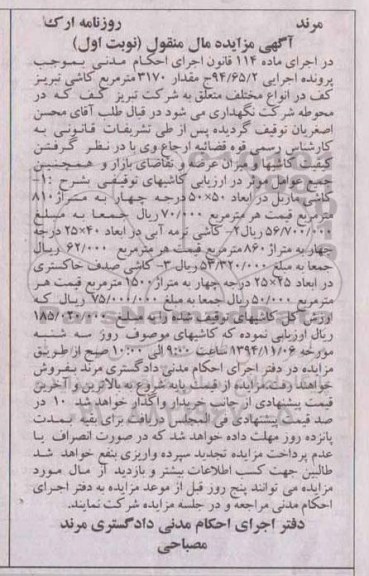 مرند روزنامه ارک
آگهی مزایده مال منقول (نوبت اول)
در اجرای ماده ۱۱۴ قانون اجرای احکام مدنی بموجب
پرونده اجرایی ۹۴/۶۵/۲ج مقدار ۳۱۷۰مترمربع کاشی تبریز
کف در انواع مختلف متعلق به شرکت تبریز کف که در
محوطه شرکت نگهداری می شود در قبال طلب آقای محسن
اصغریان توقیف گردیده پس از طی تشریفات قانونی به
کارشناس رسمی قوه قضائیه ارجاع وی با در نظر گرفتن
کیفیت کاشیها و میزان عرضه و تقاضای بازار و همچنین
جمیع عوامل موثر در ارزیابی کاشیهای توقیفی بشرح :۱-
کاشی ماربل در ابعاد ۵۰×۵۰ درجه چهار به متراژ ۸۱۰
مترمربع قیمت هر مترمربع ۷۰/۰۰۰ ریال جمعا به مبلغ
۵۶/۷۰۰/۰۰۰ ریال ۲- کاشی ترمه آبی در ابعاد ۴۰×۲۵ درجه
چهار به متراژ ۸۶۰ مترمربع قیمت هر مترمربع ۶۲/۰۰۰ ریال
جمعا به مبلغ ۵۳/۳۲۰/۰۰۰ ریال ۳- کاشی صدف خاکستری
در ابعاد ۲۵×۲۵ درجه چهار به متراژ ۱۵۰۰ مترمربع قیمت هر
مترمربع ۵۰/۰۰۰ ریال جمعا به مبلغ ۷۵/۰۰۰/۰۰۰ ریال که
ارزش کل کاشیهای توقیف شده را به مبلغ ۱۸۵/۰۲۰/۰۰۰
ریال ارزیابی نموده که کاشیهای موصوف روز سه شنبه
مورخه ۱۳۹۴/۱۱/۰۶ ساعت ۹:۰۰ الی ۱۰:۰۰ صبح از طریق
مزایده در دفتر اجرای احکام مدنی دادگستری مرند بفروش
خواهد رفت مزایده از قیمت پایه شروع به بالاترین و آخرین
قیمت پیشنهادی از جانب خریدار واگذار خواهد شد ۱۰ در
صد قیمت پیشنهادی فی المجلس دریافت برای بقیه بمدت
پانزده روز مهلت داده خواهد شد که در صورت انصراف یا
عدم پرداخت مزایده تجدید سپرده واریزی بنفع خواهد شد
طالبین جهت کسب اطلاعات بیشتر و بازدید از مال مورد
مزایده می توانند پنج روز قبل از موعد مزایده به دفتر اجرای
احکام مدنی مراجعه و در جلسه مزایده شرکت نمایند.
دفتر اجرای احکام مدنی دادگستری مرند
مصباحی